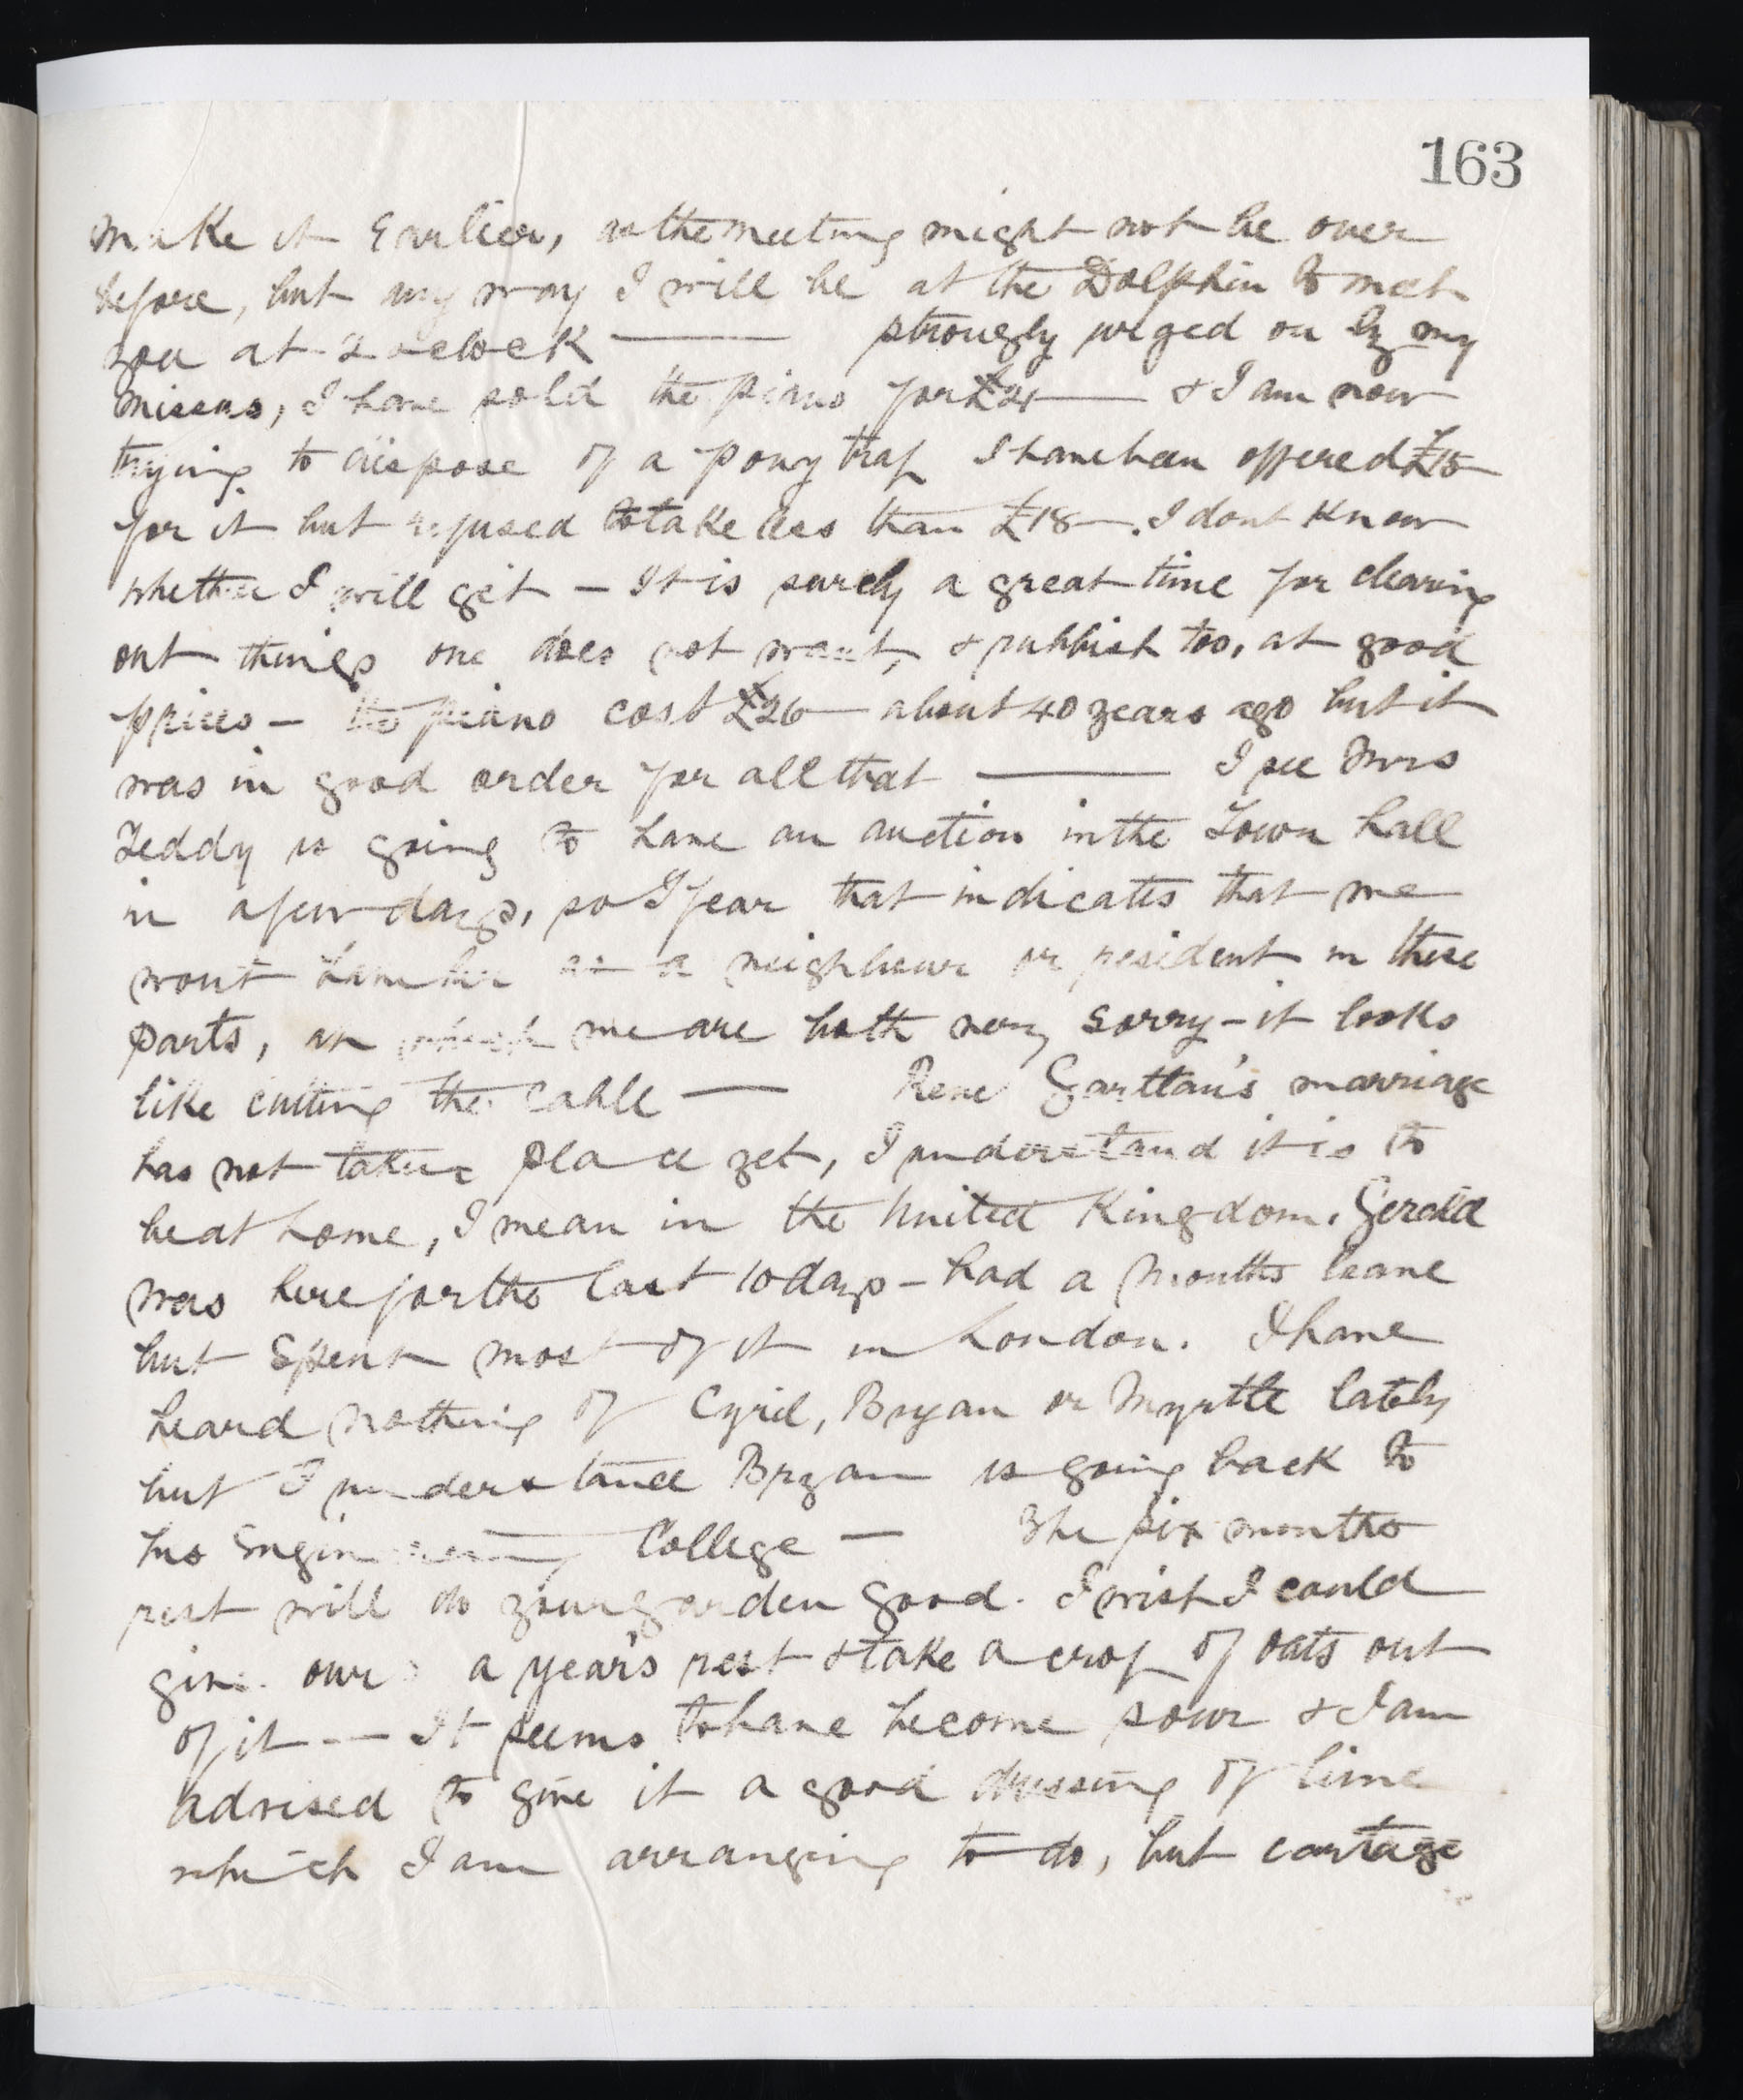 163
make it Earlier, as the meeting might not be over
before, but any way I will be at the Dolphin to meet
you at 2 oclock — strongly urged on by my
missus, I have sold the piano for £24 — & I am now
trying to dispose of a pony trap I have been offered £15
for it but refused to take less than £18 —. I dont know
whether I will get — It is surely a great time for clearing
out things one does not want, & rubbish too, at good
prices — the piano cost £26 — about 40 years ago but it
was in good order for all that — I see Mrs
Teddy is going to have an auction in the Town hall
in a few days, so I fear that indicates that we
wont have her as a neighbour or resident in these
parts, at which we are both very sorry — it looks
like cutting the cable — Rene Garttan's marriage
has not taken place yet, I understand it is to
be at home, I mean in the United Kingdom. Gerald
was here for the last 10 days — had a months leave
but spent most of it in London. I have
heard nothing of Cyril, Bryan or Myrtle lately
but I understand Bryan is going back to
his Engineering College — The six months
rest will do your garden good. I wish I could
give ours a year's rest & take a crop of oats out
of it — It seems to have become sour & I am
advised to give it a good dressing of lime
which I am arranging to do, but cartage